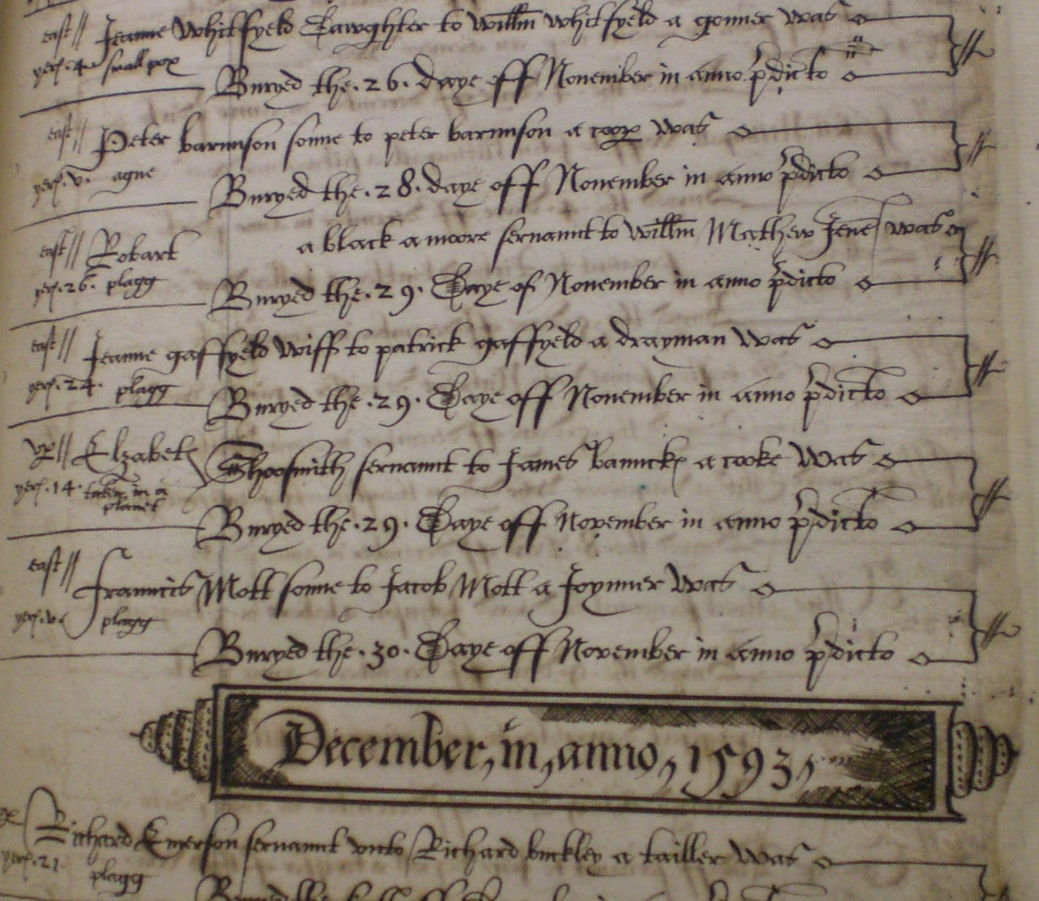 east// Jeanne Whitfyeld Dawghter to willm whitfyeld a gonner was
yers .4. small pox
Buryed the .26. daye off November in anno p̄dicto
east// Peter barnnson sonne to peter barnnson a coop was
yers .v. ague
Buryed the .28. daye off November in anno p̄dicto
east// Robart a black a moore servannt to willm Mathew Jene was
yers .26. plagg
Buryed the .29. Daye of November in anno p̄dicto
east// Jeanne gaffyeld wiff to patrick gaffyeld a drayman was
yers .24. plagg
Buryed the .29. Daye off November in anno p̄dicto
Elzabeth Shoosmith servannt to James a cooke was
yers .14. taken in a planet
Buryed the .29. Daye off November in anno p̄dicto
east// Franncis Mott sonne to Jacob Mott a Joynner was
yers .v. plagg
Buryed the .30. Daye off November in anno p̄dicto
December, in, anno, 1593,
Richard Emerson servannt unto Richard buckley a tailler was
yers .21. plagg
Buryed the